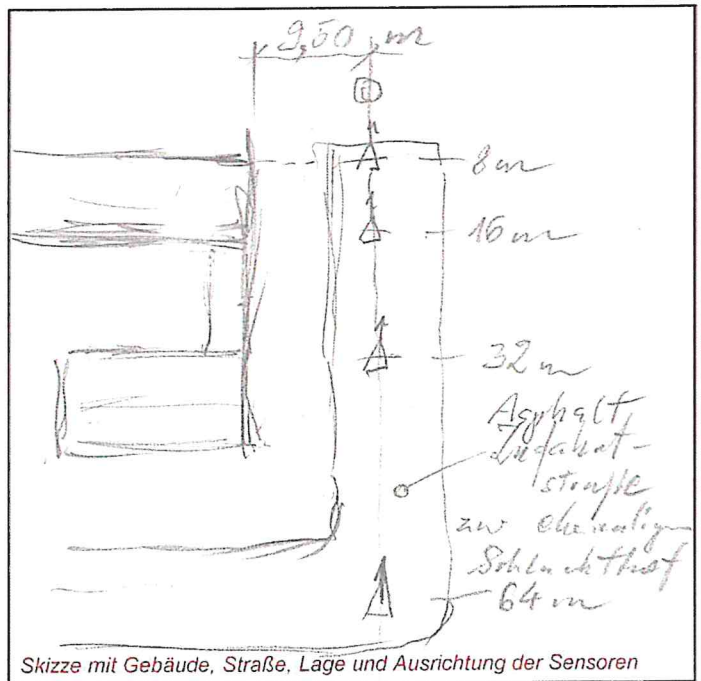 9,50 m
D
8 m
16 m
32 m
Asphalt
Zufahrt-
straße
zur ehemaligen
Schlachthof
64 m
Skizze mit Gebäude, Straße, Lage und Ausrichtung der Sensoren